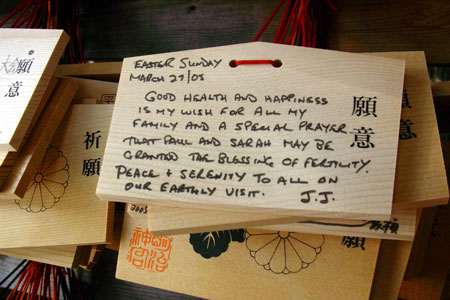 EASTER SUNDAY
MARCH 27/05
GOOD HEALTH AND HAPPINESS
IS MY WISH FOR ALL MY
FAMILY AND A SPECIAL PRAYER
THAT PAUL AND SARAH MAY BE
GRANTED THE BLESSING OF FERTILITY.
PEACE + SERENITY TO ALL ON
OUR EARTHLY VISIT. J.J.
願意
願意
祈願
願